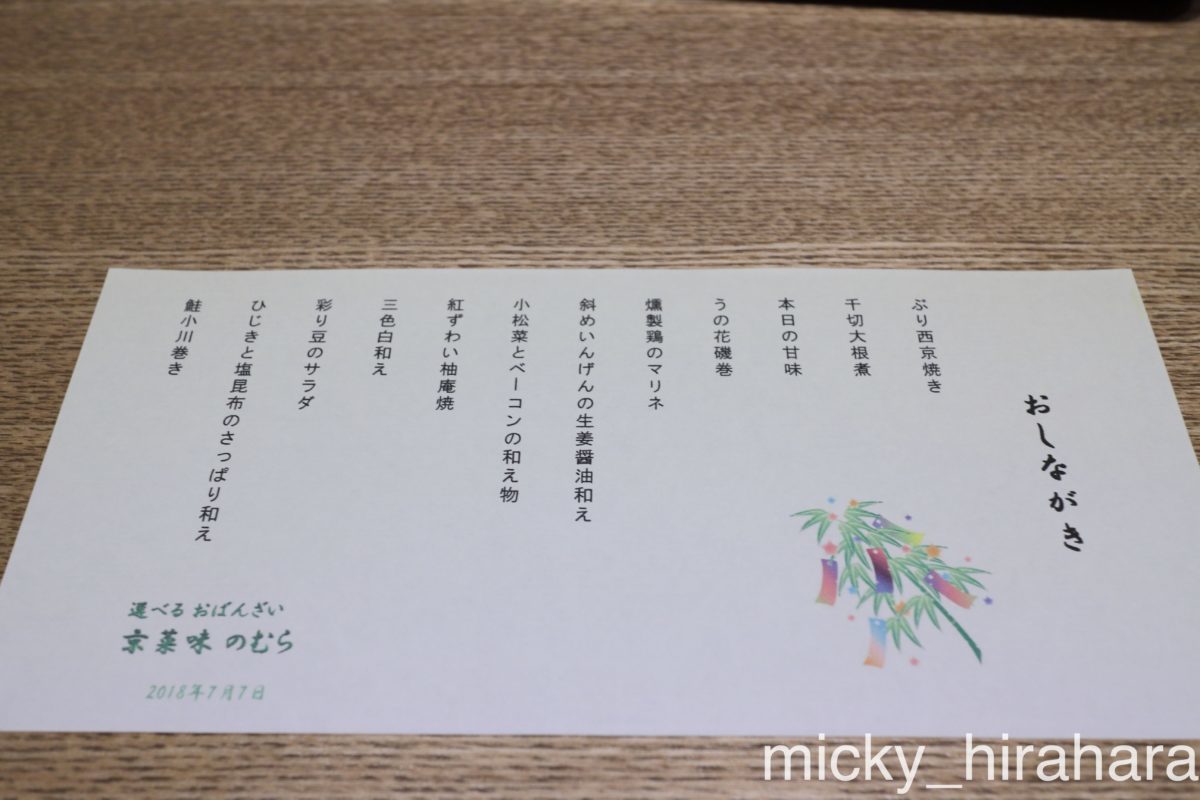 おしながき
ぶり西京焼き
千切大根煮
本日の甘味
うの花磯巻
燻製鶏のマリネ
斜めいんげんの生姜醤油和え
小松菜とベーコンの和え物
紅ずわい柚庵焼
三色白和え
彩り豆のサラダ
ひじきと塩昆布のさっぱり和え
鮭小川巻き
選べる おばんざい
京菜味 のむら
2018年7月7日
micky_hirahara